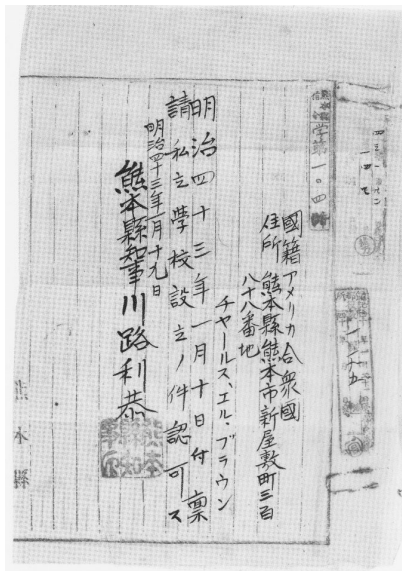 熊本縣
学第一〇四號
國籍アメリカ合衆國
住所熊本縣熊本市新屋敷町三百
八十八番地
チャールス、エル・ブラウン
明治四十三年一月十日付稟
請私立學校設立ノ件認可ス
明治四十三年一月十九日
熊本縣知事川路利恭
熊本縣知事印
熊本縣